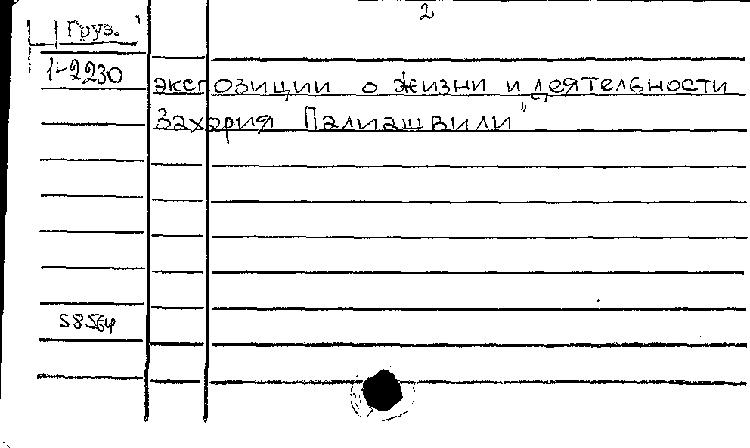 2
Груз.
1-2230
экспозиции о жизни и деятельности
Захария Палиашвили"
58564